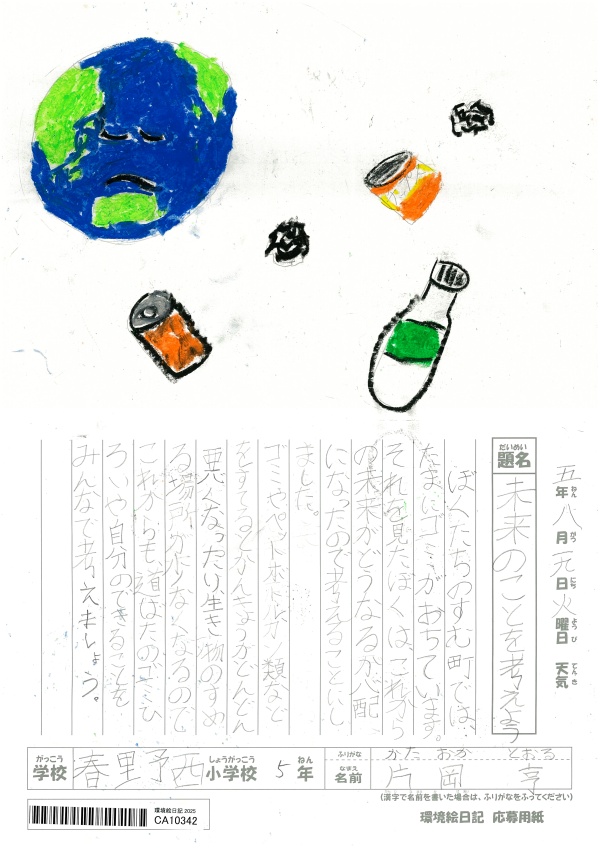 五年八月元日火曜日 天気
ねん がつ にち ようび てんき
だいめい
題名
未来のことを考えよう
ぼくたちのすむ町では、
たまにゴミがおちています。
それを見たぼくは、これから
の未来がどうなるか心配
になったので考えることにし
ました。
ゴミやペットボトル、カン類など
をすてるとかんきょうがどんどん
悪くなったり、生き物のすめ
る場所が少なくなるので
これからも、道ばたのゴミひ
ろいや自分のできることを
みんなで考えましょう。
がっこう しょうがっこう ねん
学校 春里野西 小学校 5 年
ふりがな かた おか とおる
なまえ
名前 片岡 亨
(漢字で名前を書いた場合は、ふりがなをふってください)
環境絵日記 2025
CA10342
環境絵日記 応募用紙